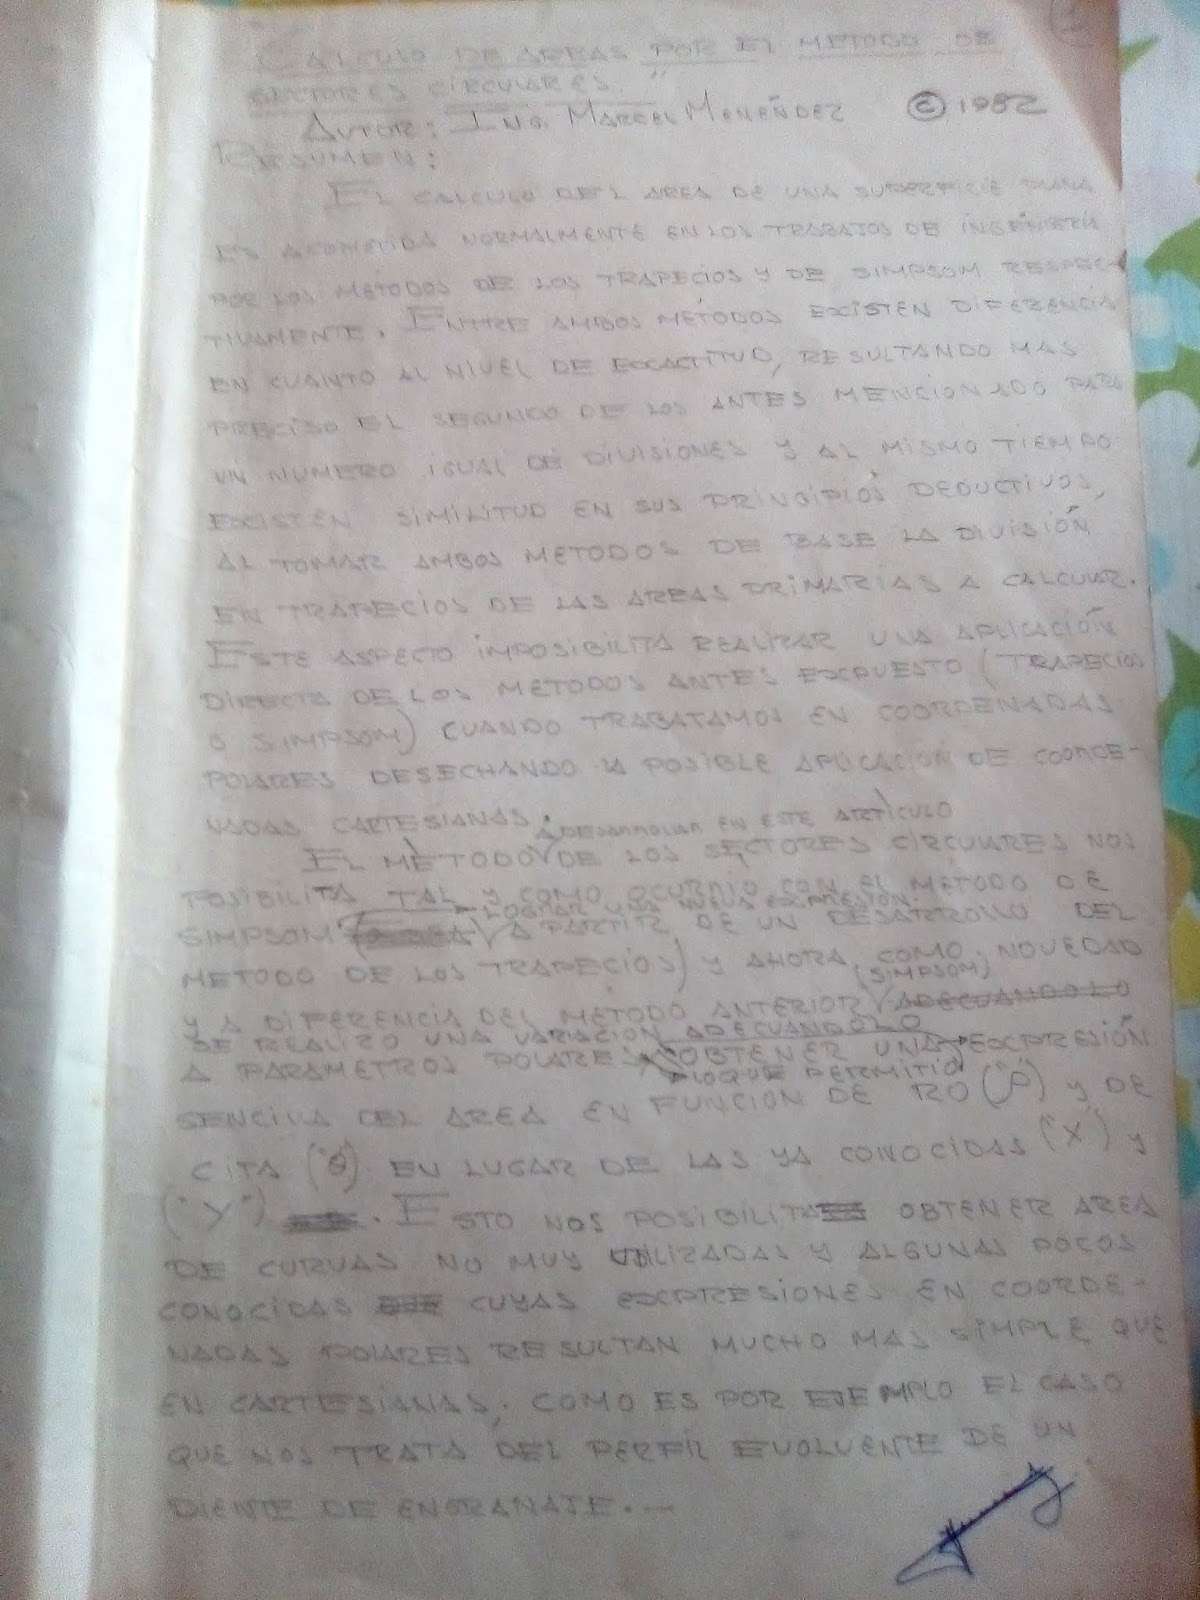 1
"CALCULO DE AREAS POR EL METODO DE
SECTORES CIRCULARES."
AUTOR: ING. MARCEL MENÉNDEZ © 1982
RESUMEN:
EL CALCULO DEL AREA DE UNA SUPERFICIE PLANA
ES ACOMETIDA NORMALMENTE EN LOS TRABAJOS DE INGENIERÍA
POR LOS METODOS DE LOS TRAPECIOS Y DE SIMPSOM RESPEC-
TIVAMENTE. ENTRE AMBOS METODOS EXISTEN DIFERENCIA
EN CUANTO AL NIVEL DE EXACTITUD, RESULTANDO MAS
PRECISO EL SEGUNDO DE LOS ANTES MENCIONADO PARA
UN NUMERO IGUAL DE DIVISIONES Y AL MISMO TIEMPO
EXISTEN SIMILITUD EN SUS PRINCIPIOS DEDUCTIVOS,
AL TOMAR AMBOS METODOS DE BASE LA DIVISIÓN
EN TRAPECIOS DE LAS AREAS PRIMARIAS A CALCULAR.
ESTE ASPECTO IMPOSIBILITA REALIZAR UNA APLICACIÓN
DIRECTA DE LOS METODOS ANTES EXPUESTO (TRAPECIOS
O SIMPSOM) CUANDO TRABATAMOS EN COORDENADAS
POLARES DESECHANDO LA POSIBLE APLICACION DE COORDE-
NADAS CARTESIANAS.
A DESARROLLAR EN ESTE ARTÍCULO
EL METODO DE LOS SECTORES CIRCULARES NOS
POSIBILITA TAL Y COMO OCURRIO CON EL METODO DE
LOGRAR UNA NUEVA EXPRESION
SIMPSOM A PARTIR DE UN DESARROLLO DEL
METODO DE LOS TRAPECIOS) Y AHORA COMO NOVEDAD
(SIMPSOM)
Y A DIFERENCIA DEL METODO ANTERIOR ADECUANDOLO
SE REALIZO UNA VARIACION ADECUANDOLO
A PARAMETROS POLARES OBTENER UNA EXPRESIÓN
LO QUE PERMITIO
SENCILLA DEL AREA EN FUNCION DE RO ("ρ") Y DE
CITA ("θ") EN LUGAR DE LAS YA CONOCIDAS ("X") Y
("Y"). ESTO NOS POSIBILITA OBTENER AREA
DE CURVAS NO MUY UTILIZADAS Y ALGUNAS POCOS
CONOCIDAS CUYAS EXPRESIONES EN COORDE-
NADAS POLARES RESULTAN MUCHO MAS SIMPLE QUE
EN CARTESIANAS, COMO ES POR EJEMPLO EL CASO
QUE NOS TRATA DEL PERFIL EVOLVENTE DE UN
DIENTE DE ENGRANAJE.—